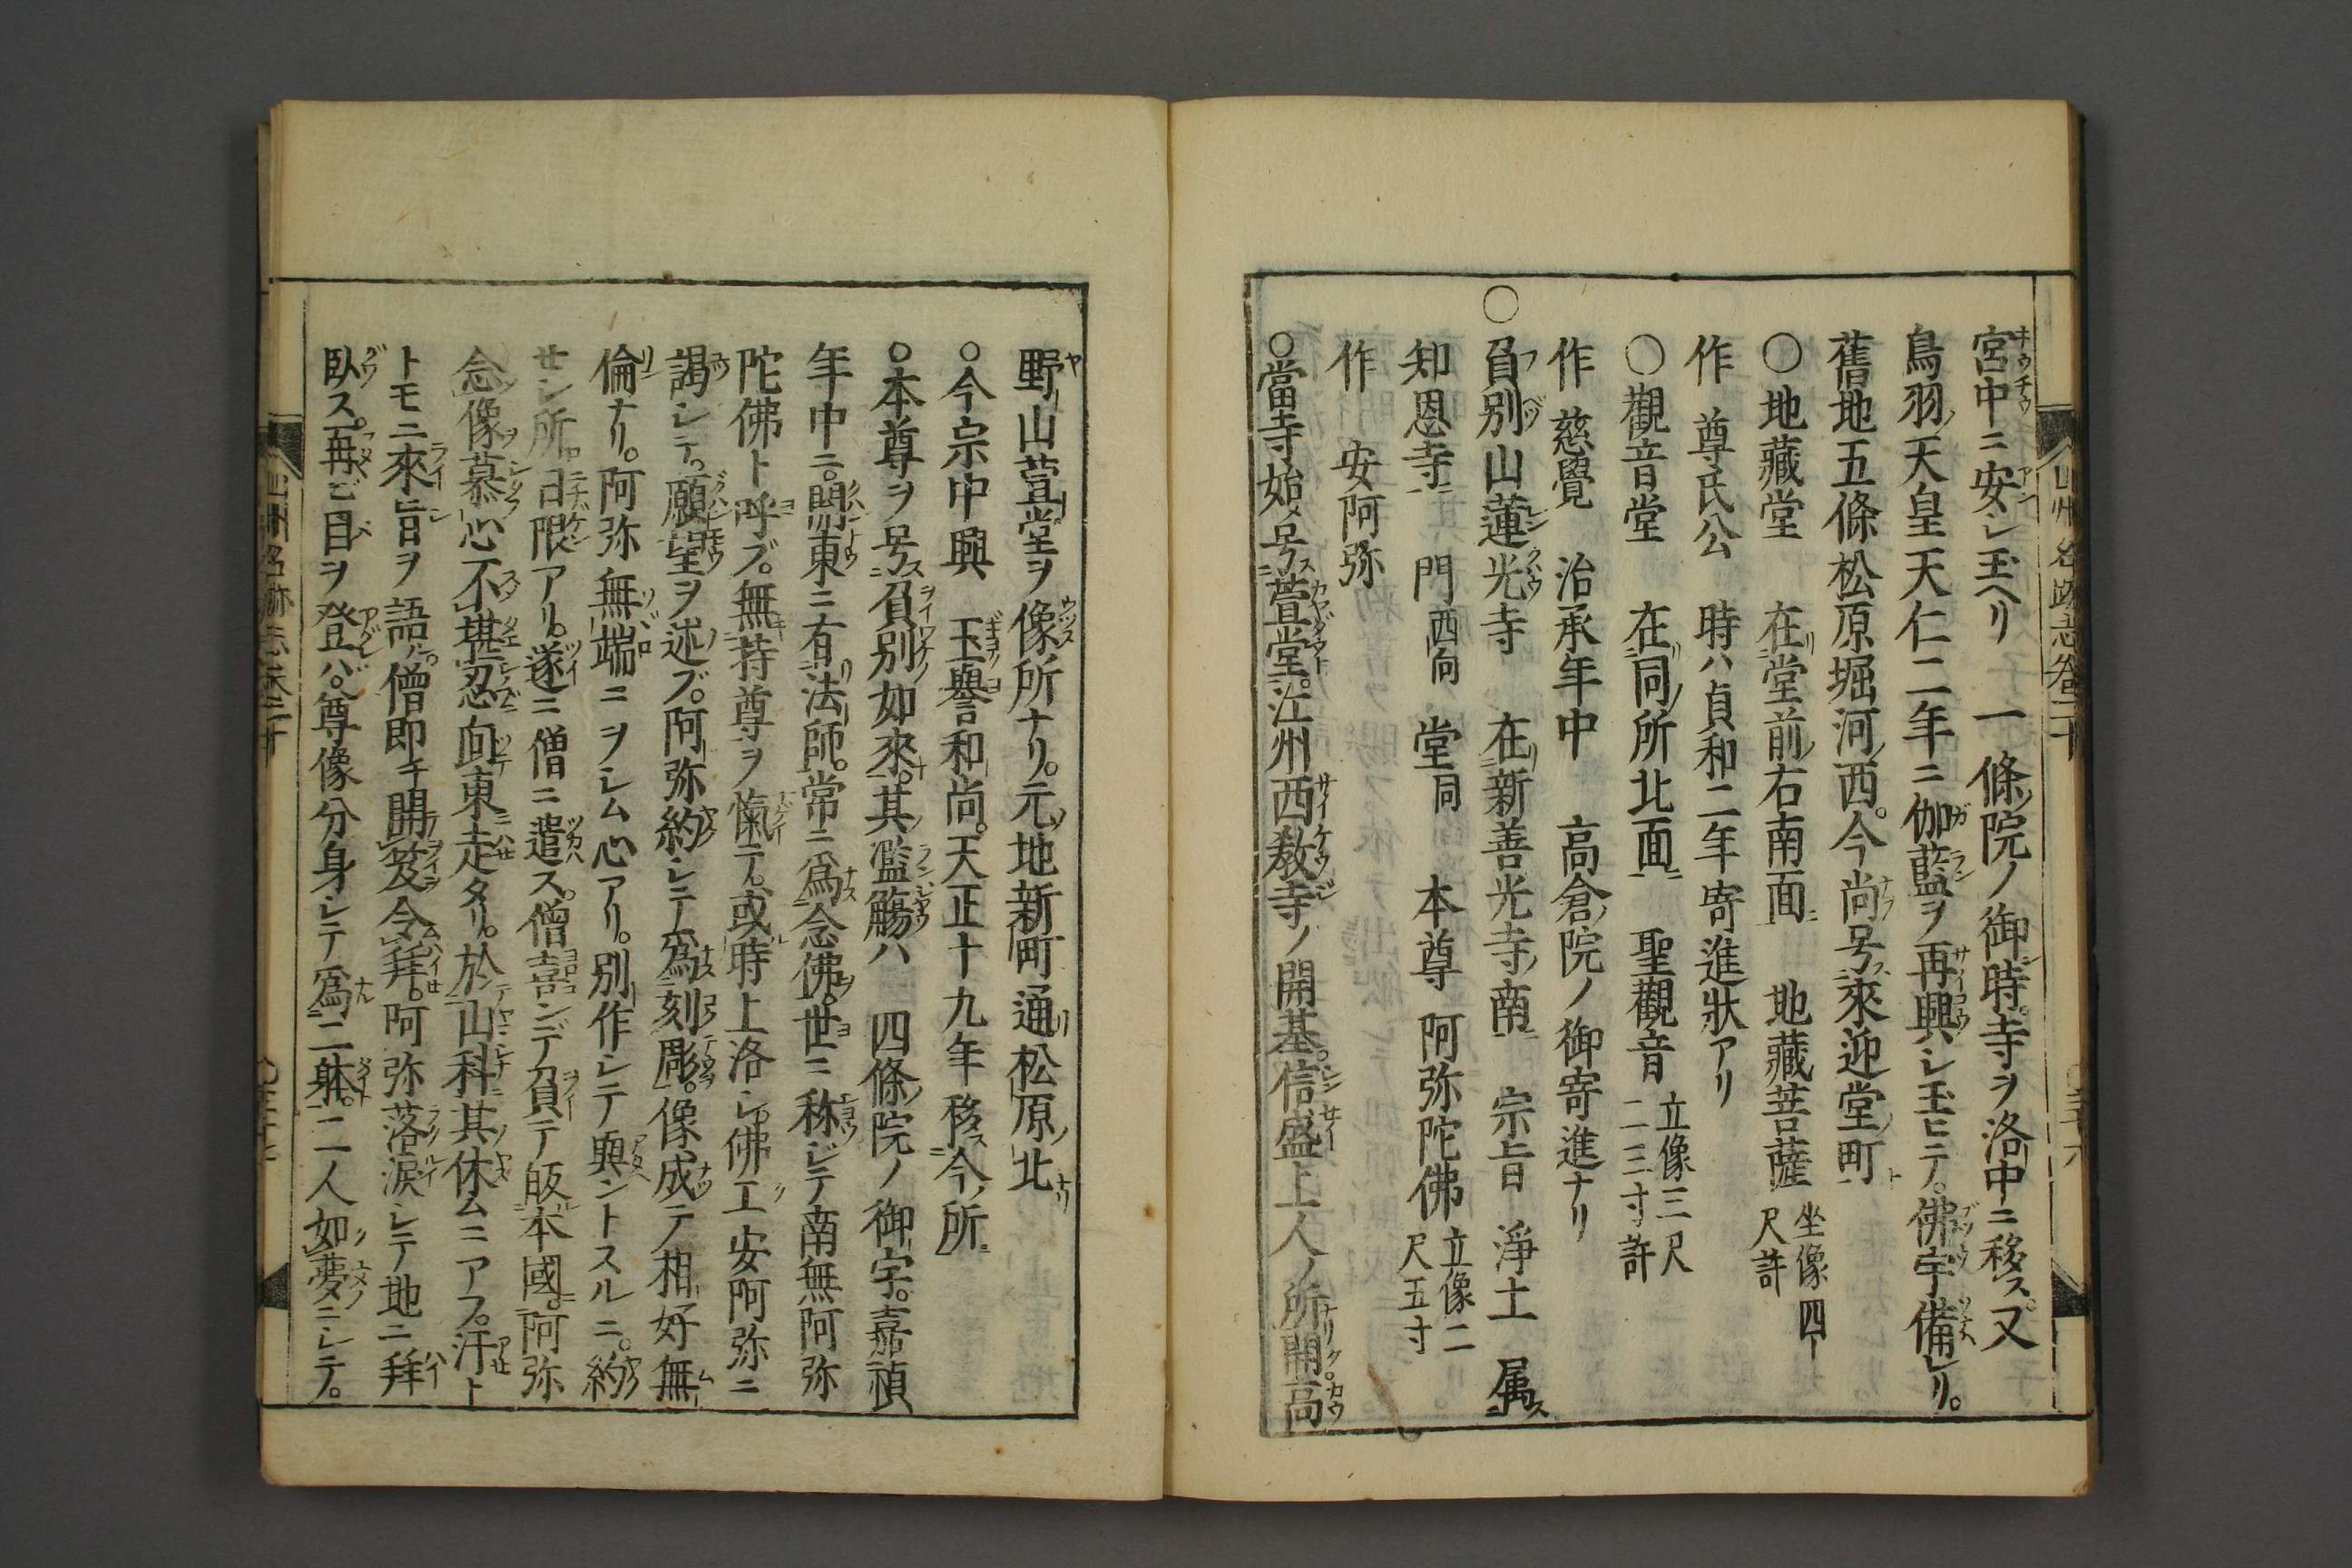 宮中ニ安シ玉ヘリ 一條院ノ御時寺ヲ洛中ニ移ス又
鳥羽天皇天仁二年ニ伽藍ヲ再興シ玉ヒテ。佛宇備レリ。
舊地五條松原堀河ノ西。今尚号ス來迎堂町ト
〇地藏堂 在堂前ノ右南面 地藏菩薩 坐像四尺許
作 尊氏公 時ハ貞和二年寄進狀アリ
〇觀音堂 在同所北面 聖觀音 立像三尺二三寸許
作 慈覺 治承年中 高倉院ノ御寄進ナリ
〇負別山蓮光寺 在新善光寺ノ南 宗旨 淨土 属ス
知恩寺ニ 門西向 堂同 本尊 阿弥陀佛 立像二尺五寸
作 安阿弥
〇當寺始メ号ス萱堂ト。江州西敎寺ノ開基。信盛上人ノ所開高
野山萱堂ヲ像所ナリ。元ノ地新町通松原ノ北ナリ
〇今宗中興 玉譽和尚。天正十九年移ス今ノ所ニ
〇本尊ヲ号ス負別如來。其ノ濫觴ハ 四條院ノ御宇。嘉禎
年中ニ。關東ニ有リ法師。常ニ爲ス念佛ヲ。世ニ称シテ南無阿弥
陀佛ト呼ブ。無持尊ヲ慨テ。或時上洛シ佛工安阿弥ニ
謁シテ。願望ヲ述ブ。阿弥約シテ爲刻彫。像成テ相好無
倫ナリ。阿弥無端ニヲシム心アリ。別作シテ與ントスルニ。約
セシ所。日限アリ。遂ニ僧ニ遣ス。僧喜ンデ負テ皈本國。阿弥
念像慕心不堪忍向東走タリ。於山科其休ムニアフ。汗ト
トモニ來旨ヲ語ル。僧即チ開笈令拜。阿弥落淚シテ地ニ拜
臥ス。再ビ目ヲ登ハ。尊像分身シテ爲二躰。二人如夢ニシテ。
山州名跡志卷二十